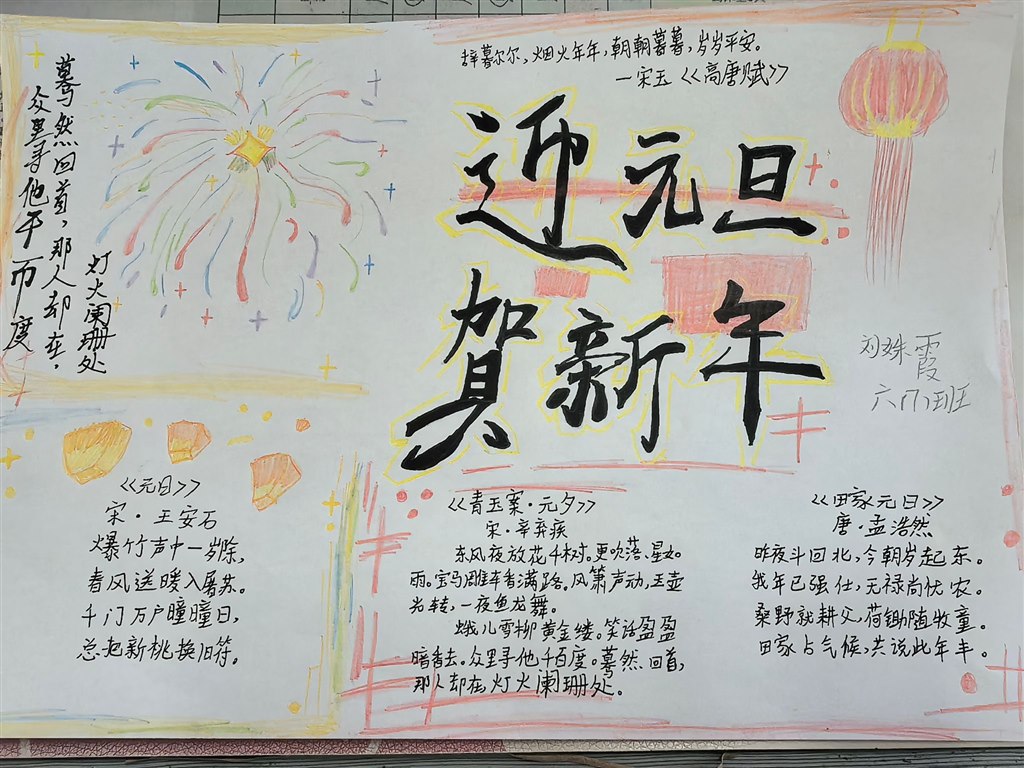 辞暮尔尔，烟火年年，朝朝暮暮，岁岁平安。
—宋玉《高唐赋》
迎元旦
贺新年
众里寻他千百度
蓦然回首，那人却在，
灯火阑珊处
霞
六 班
《元日》
宋·王安石
爆竹声中一岁除，
春风送暖入屠苏。
千门万户曈曈日，
总把新桃换旧符。
《青玉案·元夕》
宋·辛弃疾
东风夜放花千树。更吹落、星如
雨。宝马雕车香满路。风箫声动，玉壶
光转，一夜鱼龙舞。
蛾儿雪柳黄金缕。笑语盈盈
暗香去。众里寻他千百度。蓦然回首，
那人却在，灯火阑珊处。
《田家元日》
唐·孟浩然
昨夜斗回北，今朝岁起东。
我年已强仕，无禄尚忧农。
桑野就耕父，荷锄随牧童。
田家占气候，共说此年丰。